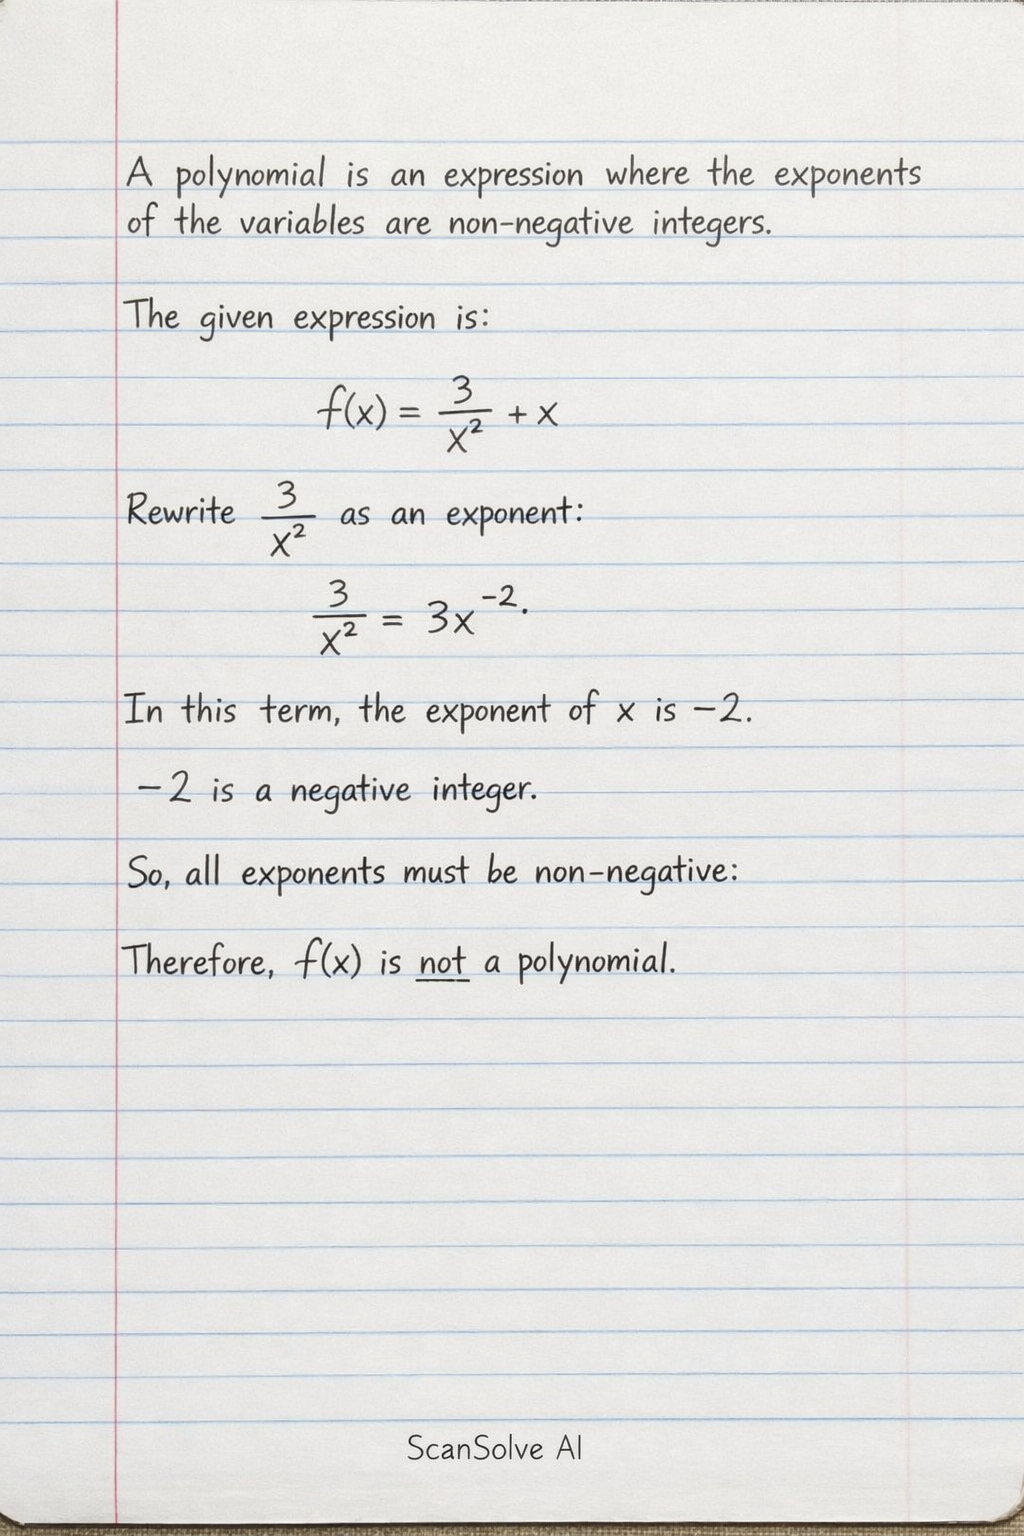 A polynomial is an expression where the exponents
of the variables are non-negative integers.
The given expression is:
f(x) = 3/x² + x
Rewrite 3/x² as an exponent:
3/x² = 3x⁻².
In this term, the exponent of x is −2.
−2 is a negative integer.
So, all exponents must be non-negative:
Therefore, f(x) is not a polynomial.
ScanSolve AI